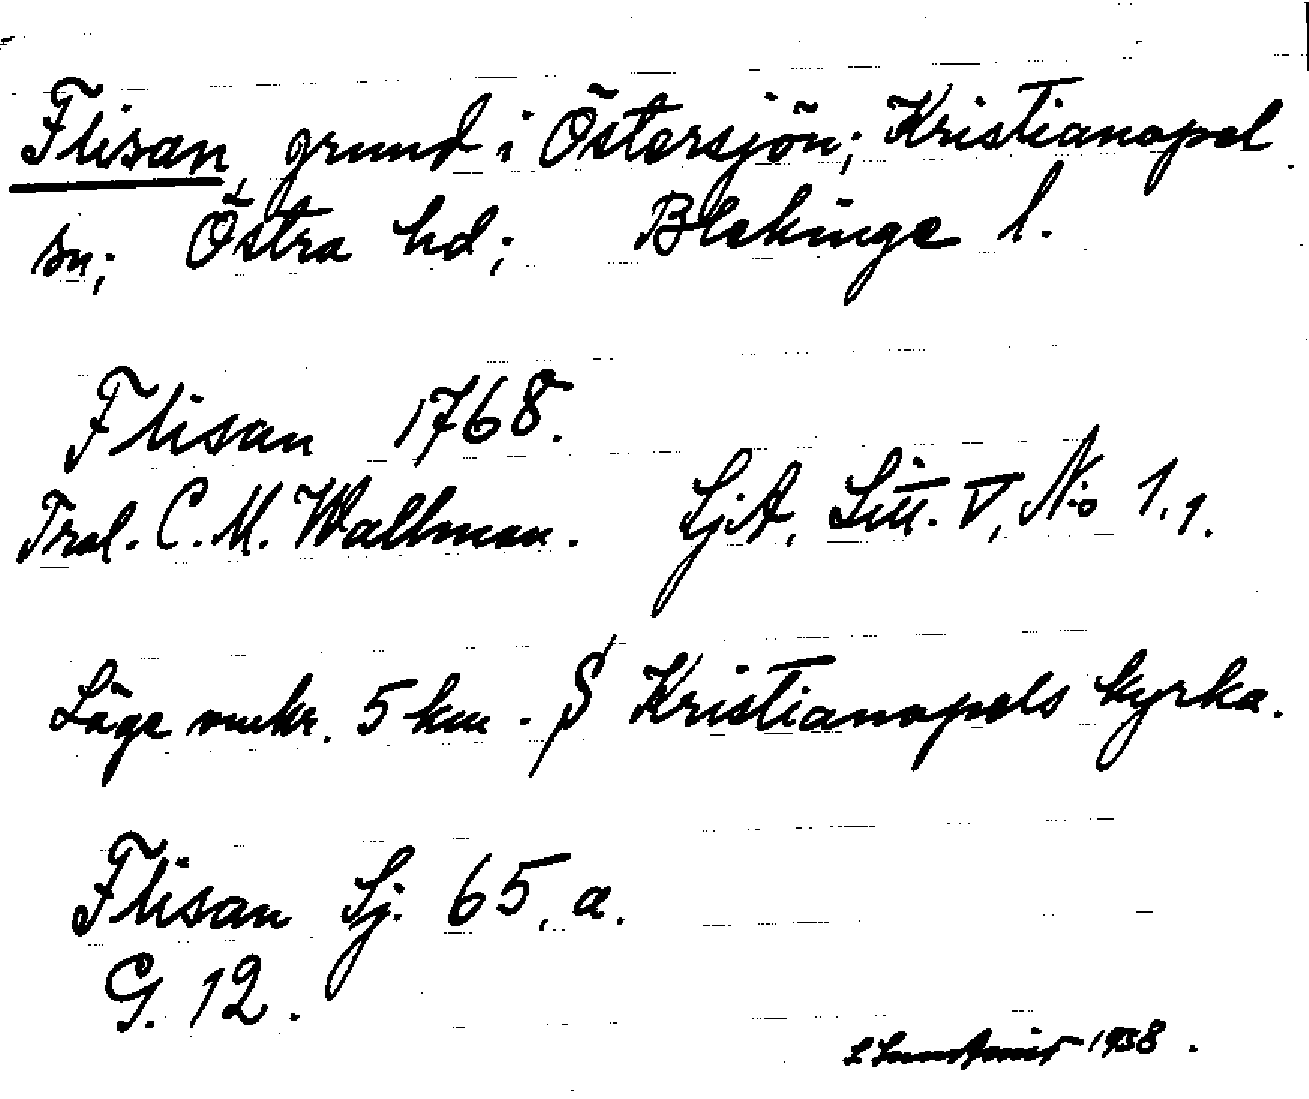 Flisan, grund i Östersjön; Kristianopel
sn; Östra hd; Blekinge l.
Flisan 1768.
Tral. C. M. Wallman. SjA, Litt. V, No 1.1.
Läge omkr. 5 km. S Kristianopels kyrka.
Flisan Sj. 65, a.
G. 12.
1938.